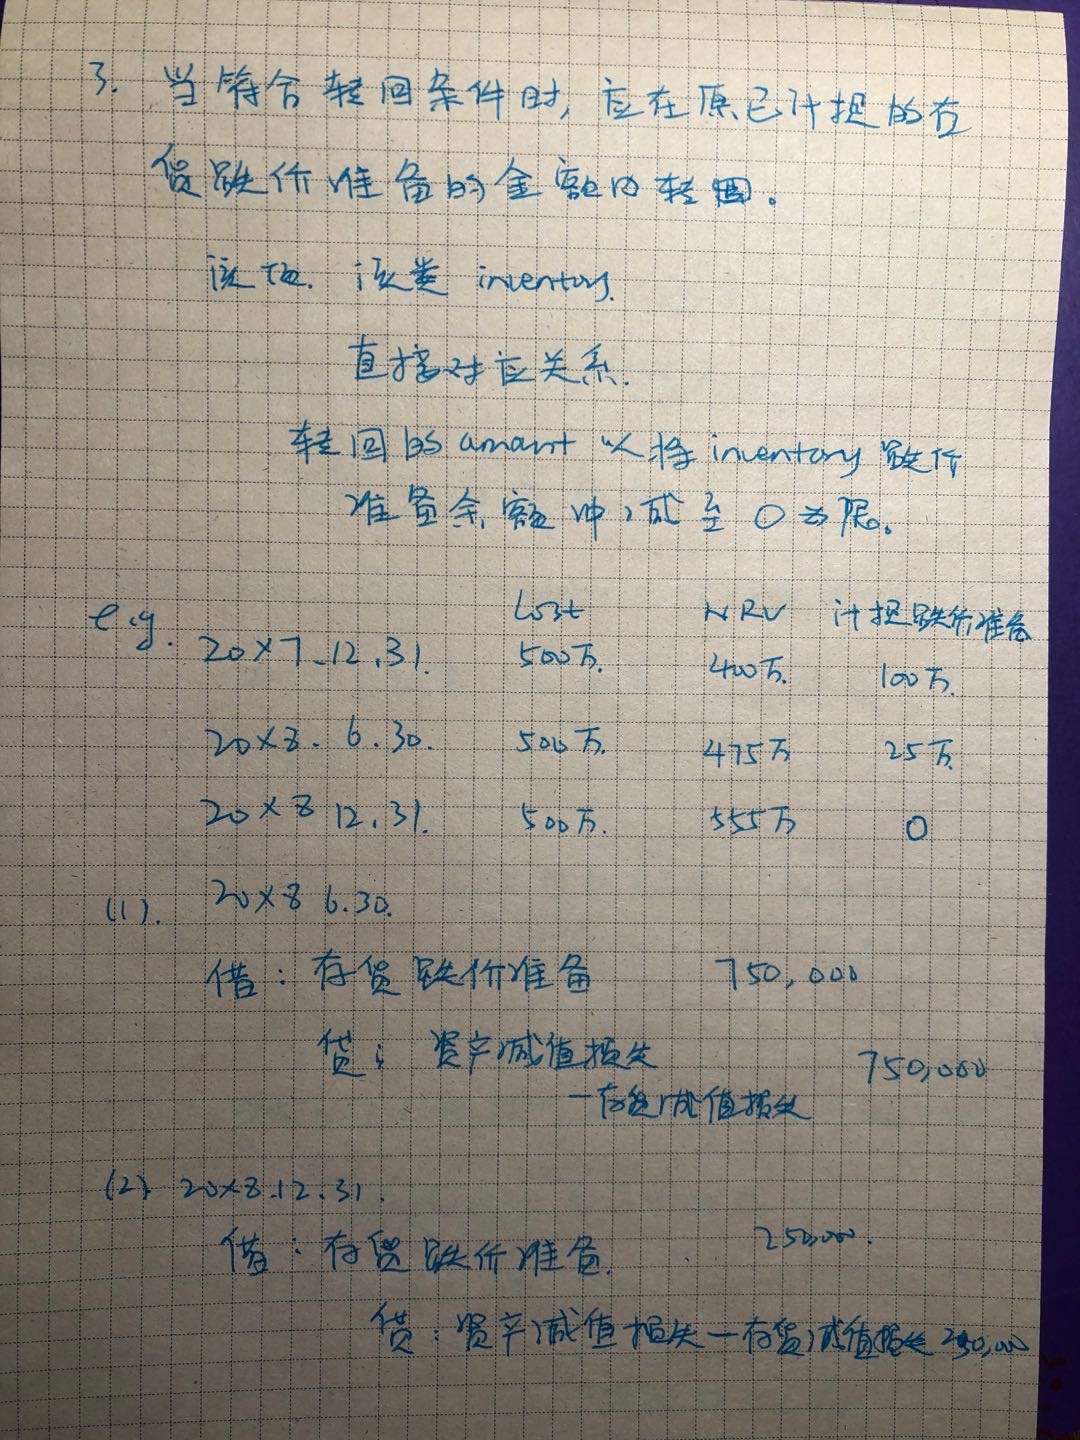 3. 当符合转回条件时, 应在原已计提的存
货跌价准备的金额内转回。
该项. 该类 inventory.
直接对应关系.
转回的 amount 以将 inventory 跌价
准备余额冲减至 0 为限。
e.g. Cost NRV 计提跌价准备
20×7.12.31. 500万. 400万. 100万.
20×8. 6.30. 500万. 475万 25万.
20×8 12.31. 500万. 555万 0
(1). 20×8 6.30.
借: 存货跌价准备 750,000
贷: 资产减值损失 750,000
—存货减值损失
(2) 20×8.12.31.
借: 存货跌价准备. 250,000.
贷: 资产减值损失—存货减值损失 250,000